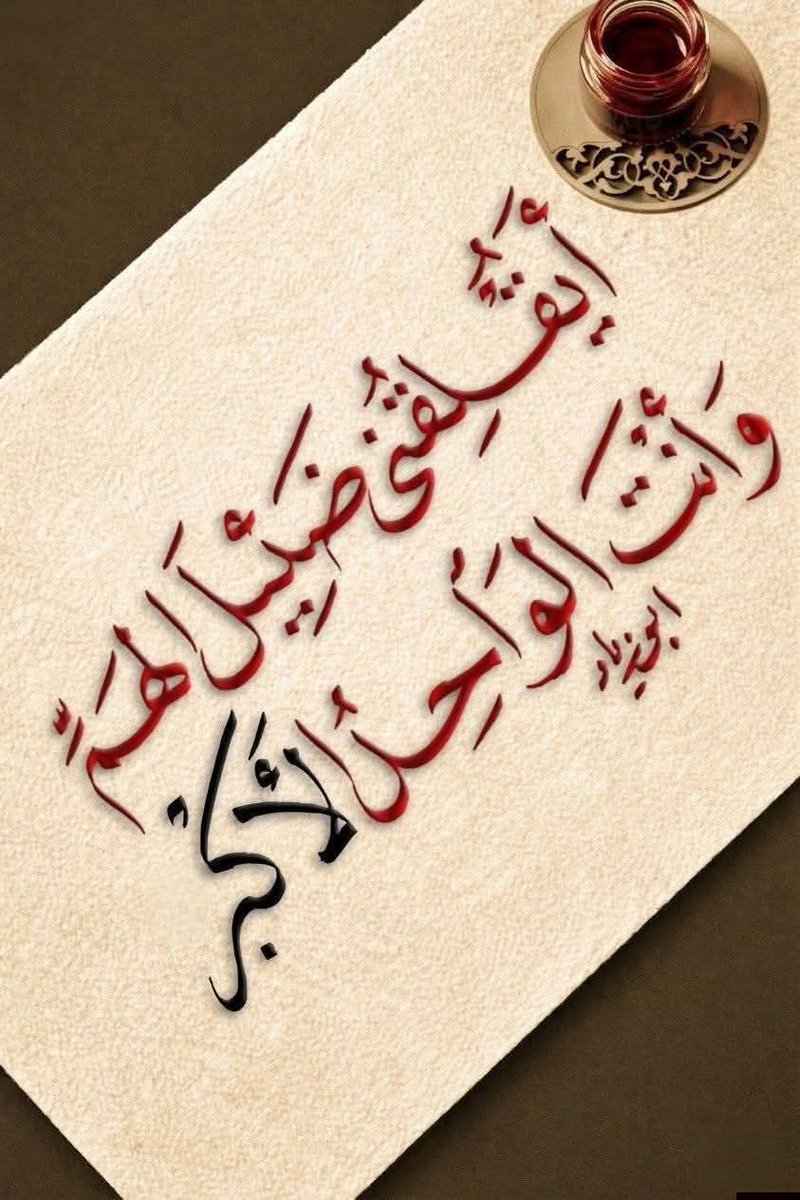 أَيُقْلِقُنِي ضَئِيلَ الهَمِّ
وَأَنْتَ الوَاحِدُ الأَكْبَر
ابوزياد